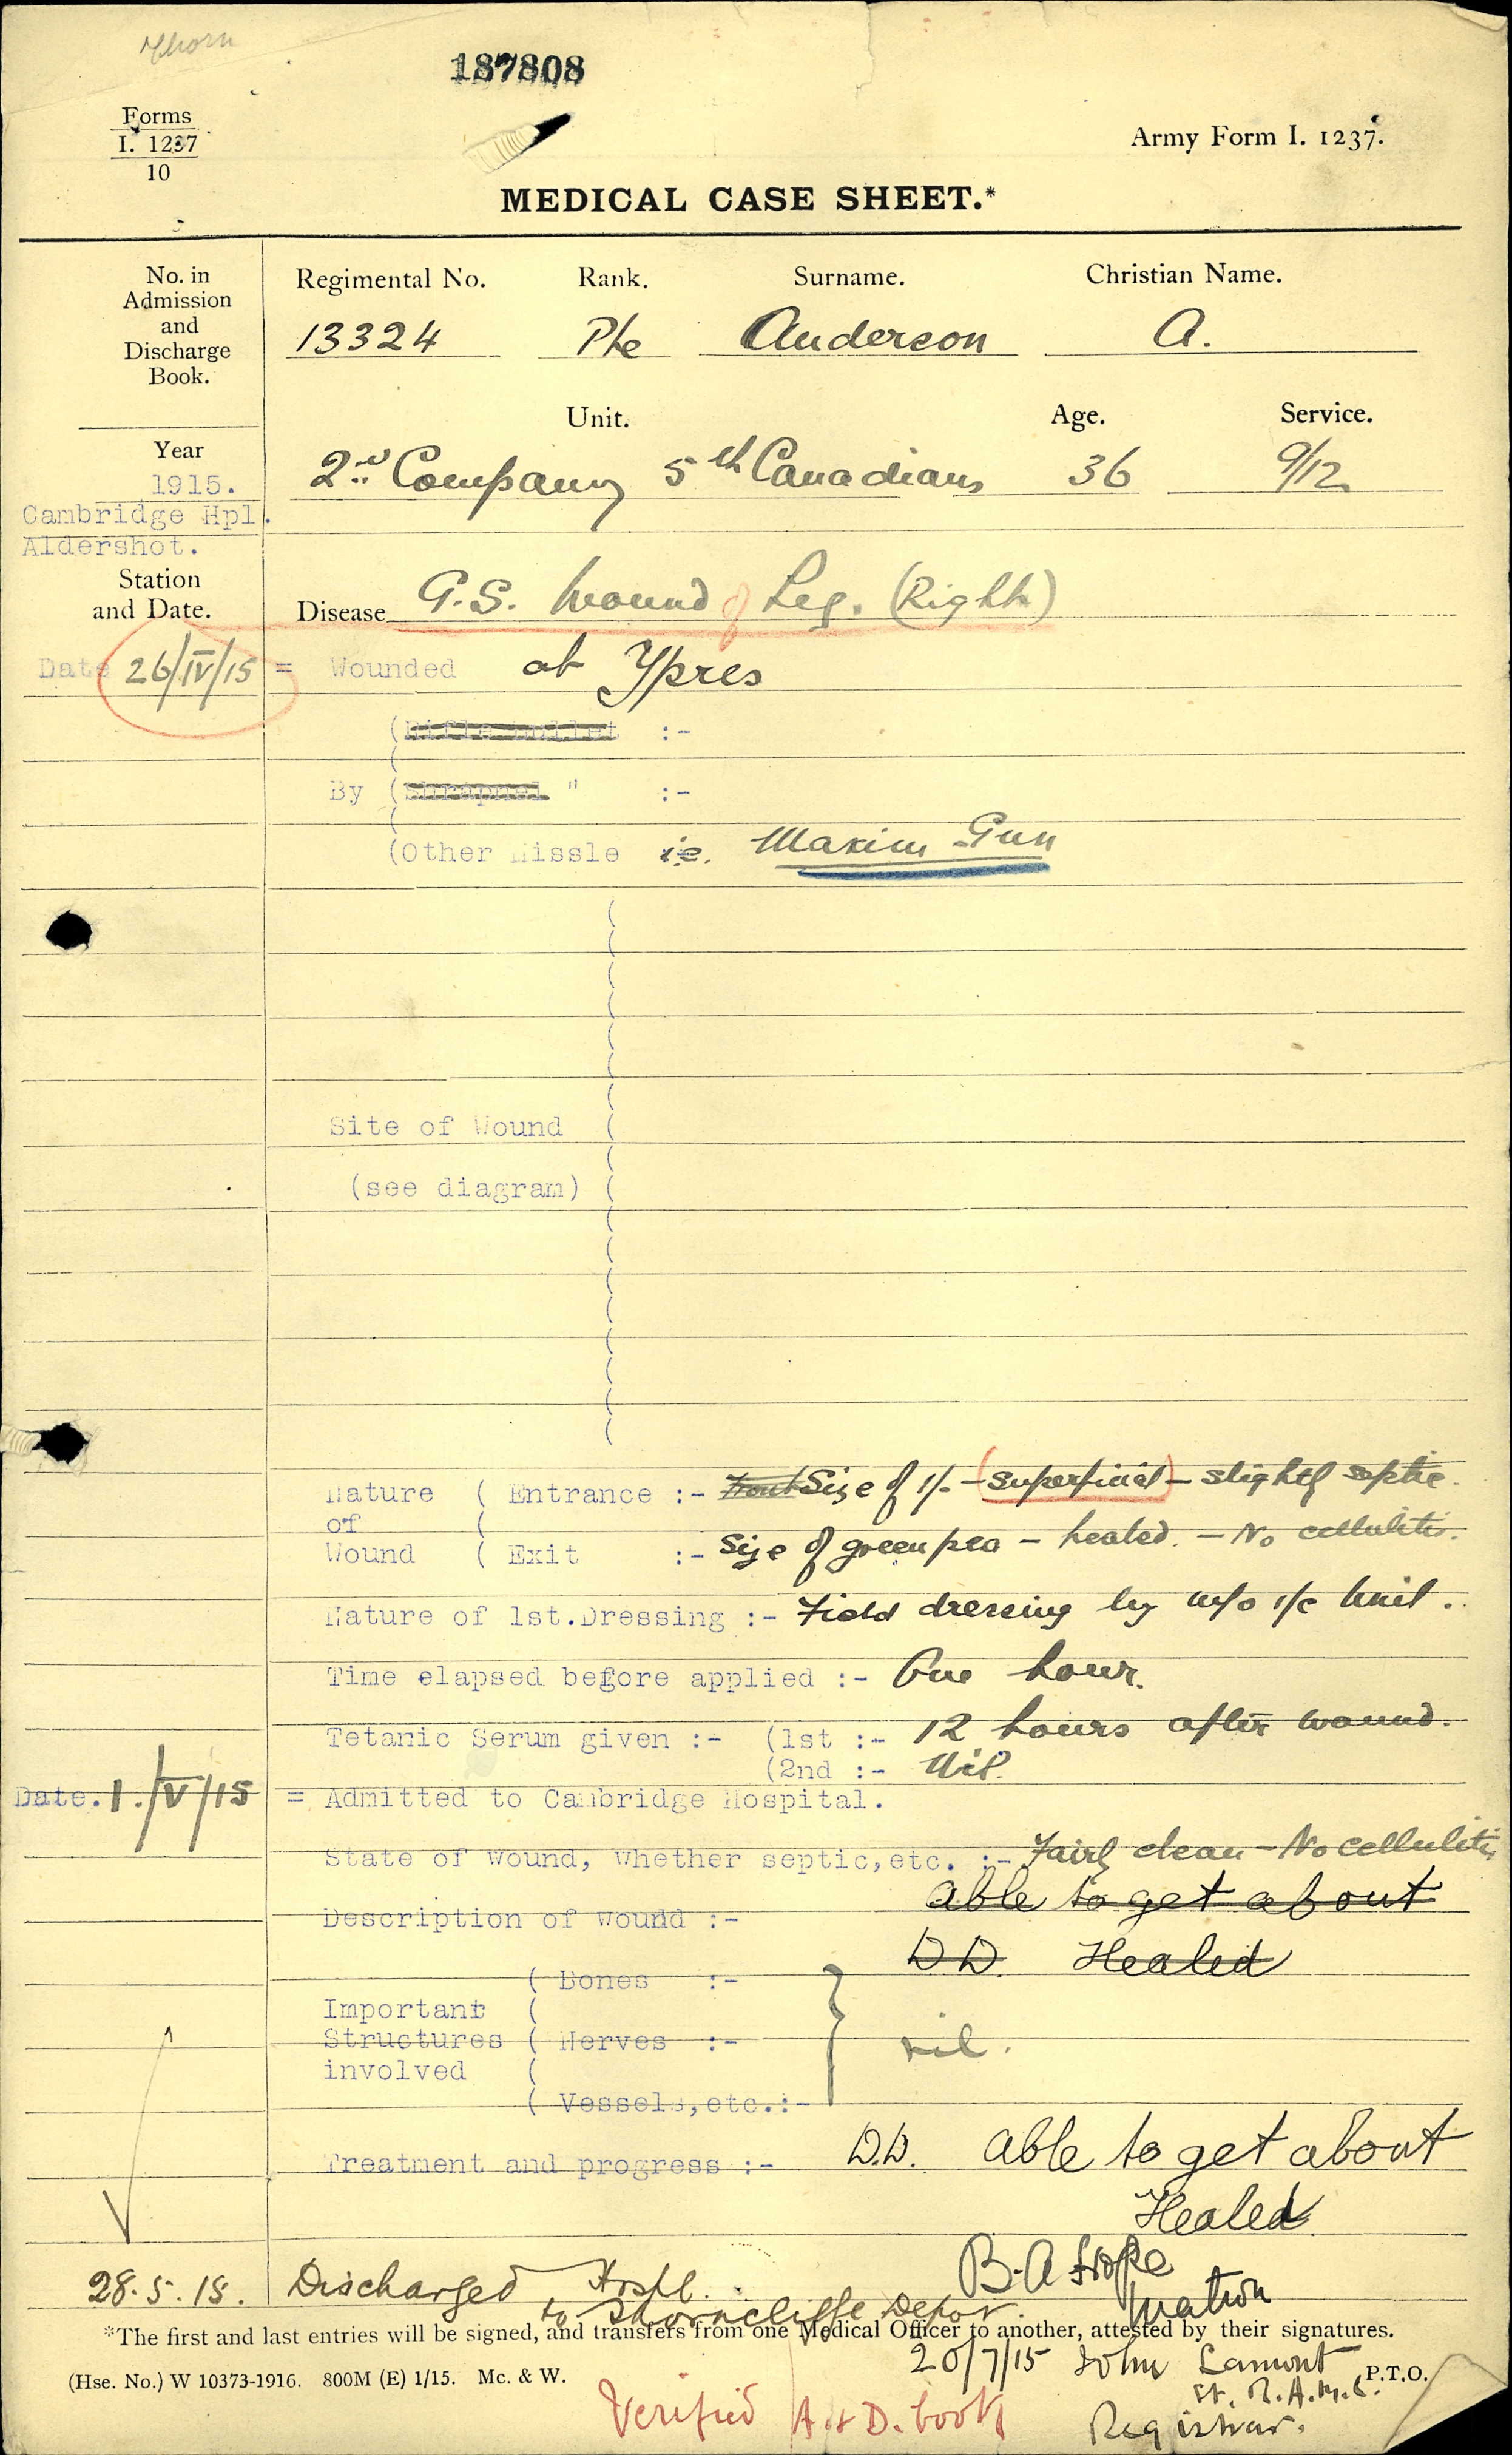 Thorn
187808
Forms
I. 1237
10
Army Form I. 1237.
MEDICAL CASE SHEET.*
No. in Admission and Discharge Book.
Regimental No. Rank. Surname. Christian Name.
13324 Pte Anderson A.
Unit. Age. Service.
Year
1915.
2nd Company 5th Canadians 36 9/12
Cambridge Hpl.
Aldershot.
Station and Date.
Disease G.S. Wound of Leg. (Right)
Date 26/IV/15 = Wounded at Ypres
(Rifle bullet :-
By (Shrapnel " :-
(Other Missle i.e. Maxim Gun
Site of Wound
(see diagram)
Nature of Wound
( Entrance :- Size of 1/- - superficial - slightly septic.
( Exit :- Size of green pea - healed. - No cellulitis.
Nature of 1st.Dressing :- Field dressing by M/O i/c Unit.
Time elapsed before applied :- One hour.
Tetanic Serum given :- (1st :- 12 hours after wound.
(2nd :- Nil.
Date. 1./V/15 = Admitted to Cambridge Hospital.
State of wound, whether septic,etc. :- Fairly clean - No cellulitis
able to get about
Description of wound :-
D.D. Healed
Important Structures involved
( Bones :-
( Nerves :- nil.
( Vessels,etc.:-
Treatment and progress :- D.D. able to get about
Healed
28.5.15. Discharged Hospl.
to Shorncliffe Depot.
B.A.
Matron
*The first and last entries will be signed, and transfers from one Medical Officer to another, attested by their signatures.
20/7/15 John Lamont
Lt. R.A.M.C.
Registrar.
(Hse. No.) W 10373-1916. 800M (E) 1/15. Mc. & W.
P.T.O.
Verified A. & D. book